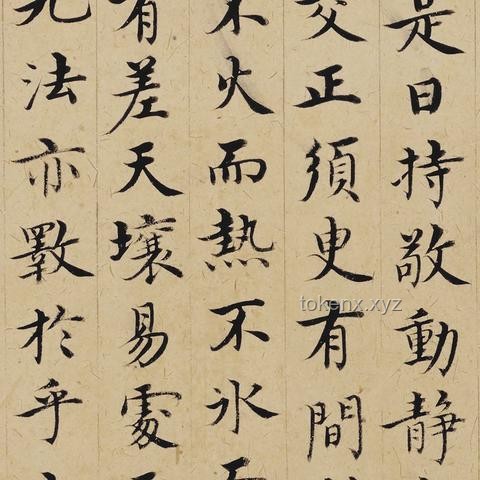 是曰持敬動靜
交正須臾有間
不火而熱不氷
有差天壤易處
九法亦斁於乎
tokenx.xyz